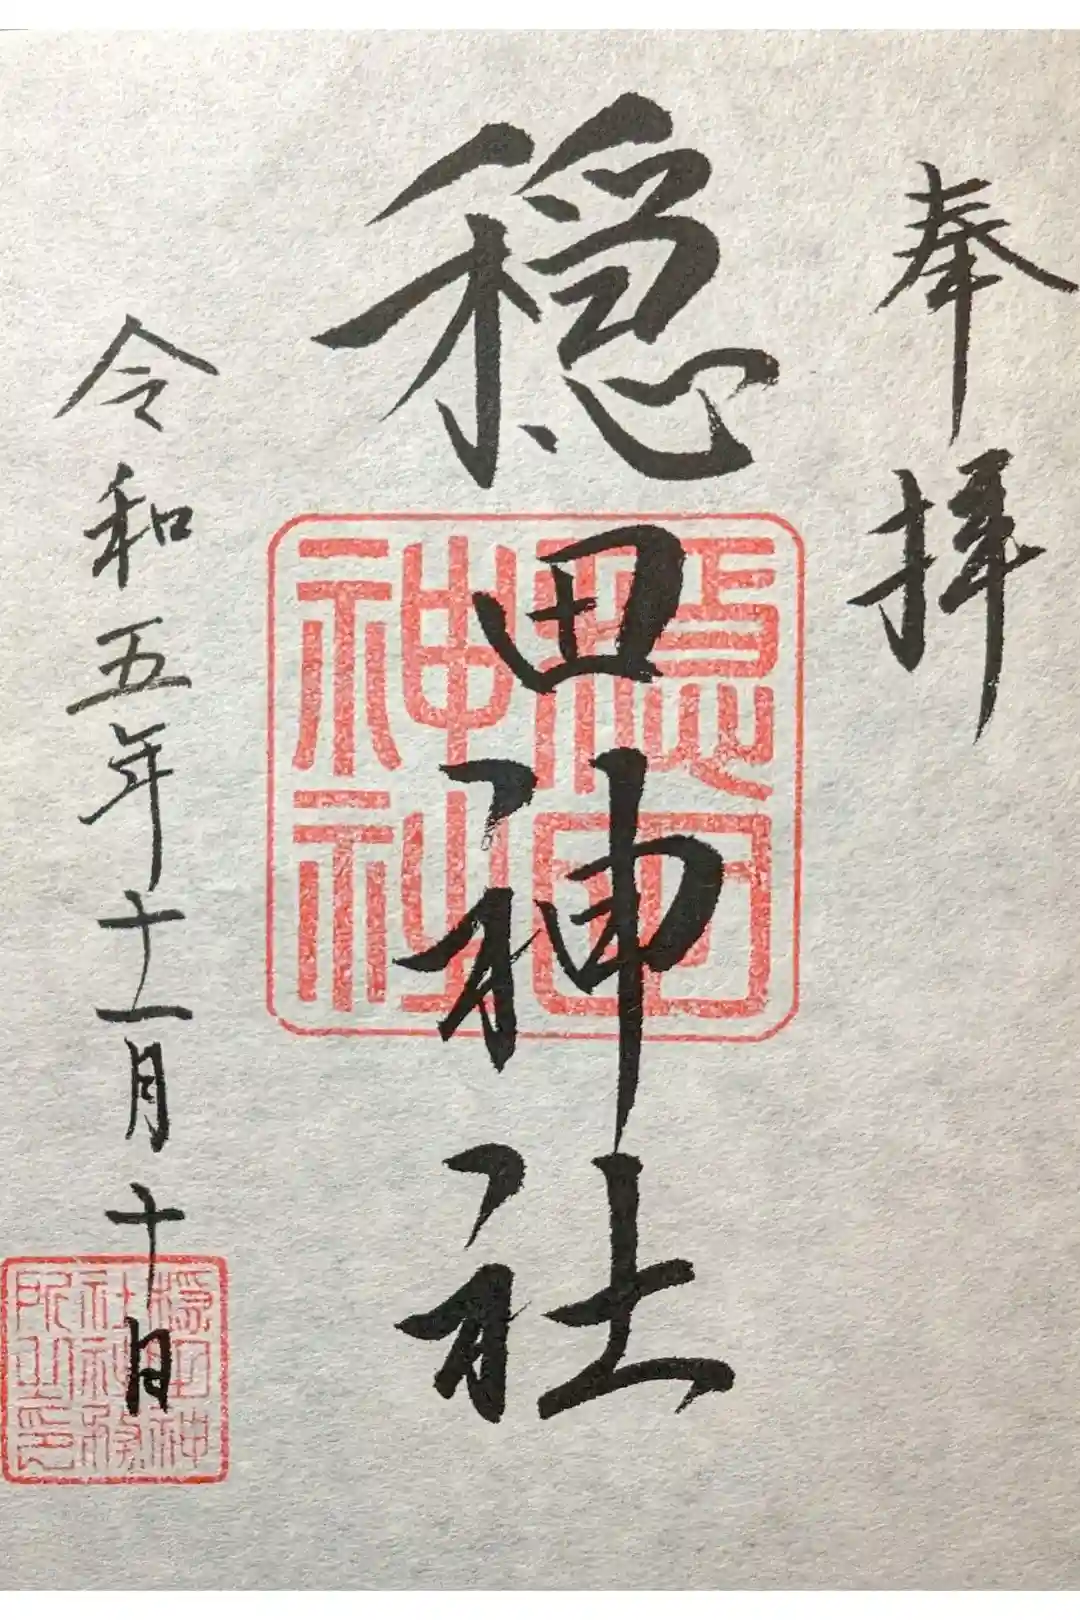 奉拝
穏田神社
穏田
神社
令和五年十一月十日
穏田神
社社務
所之印